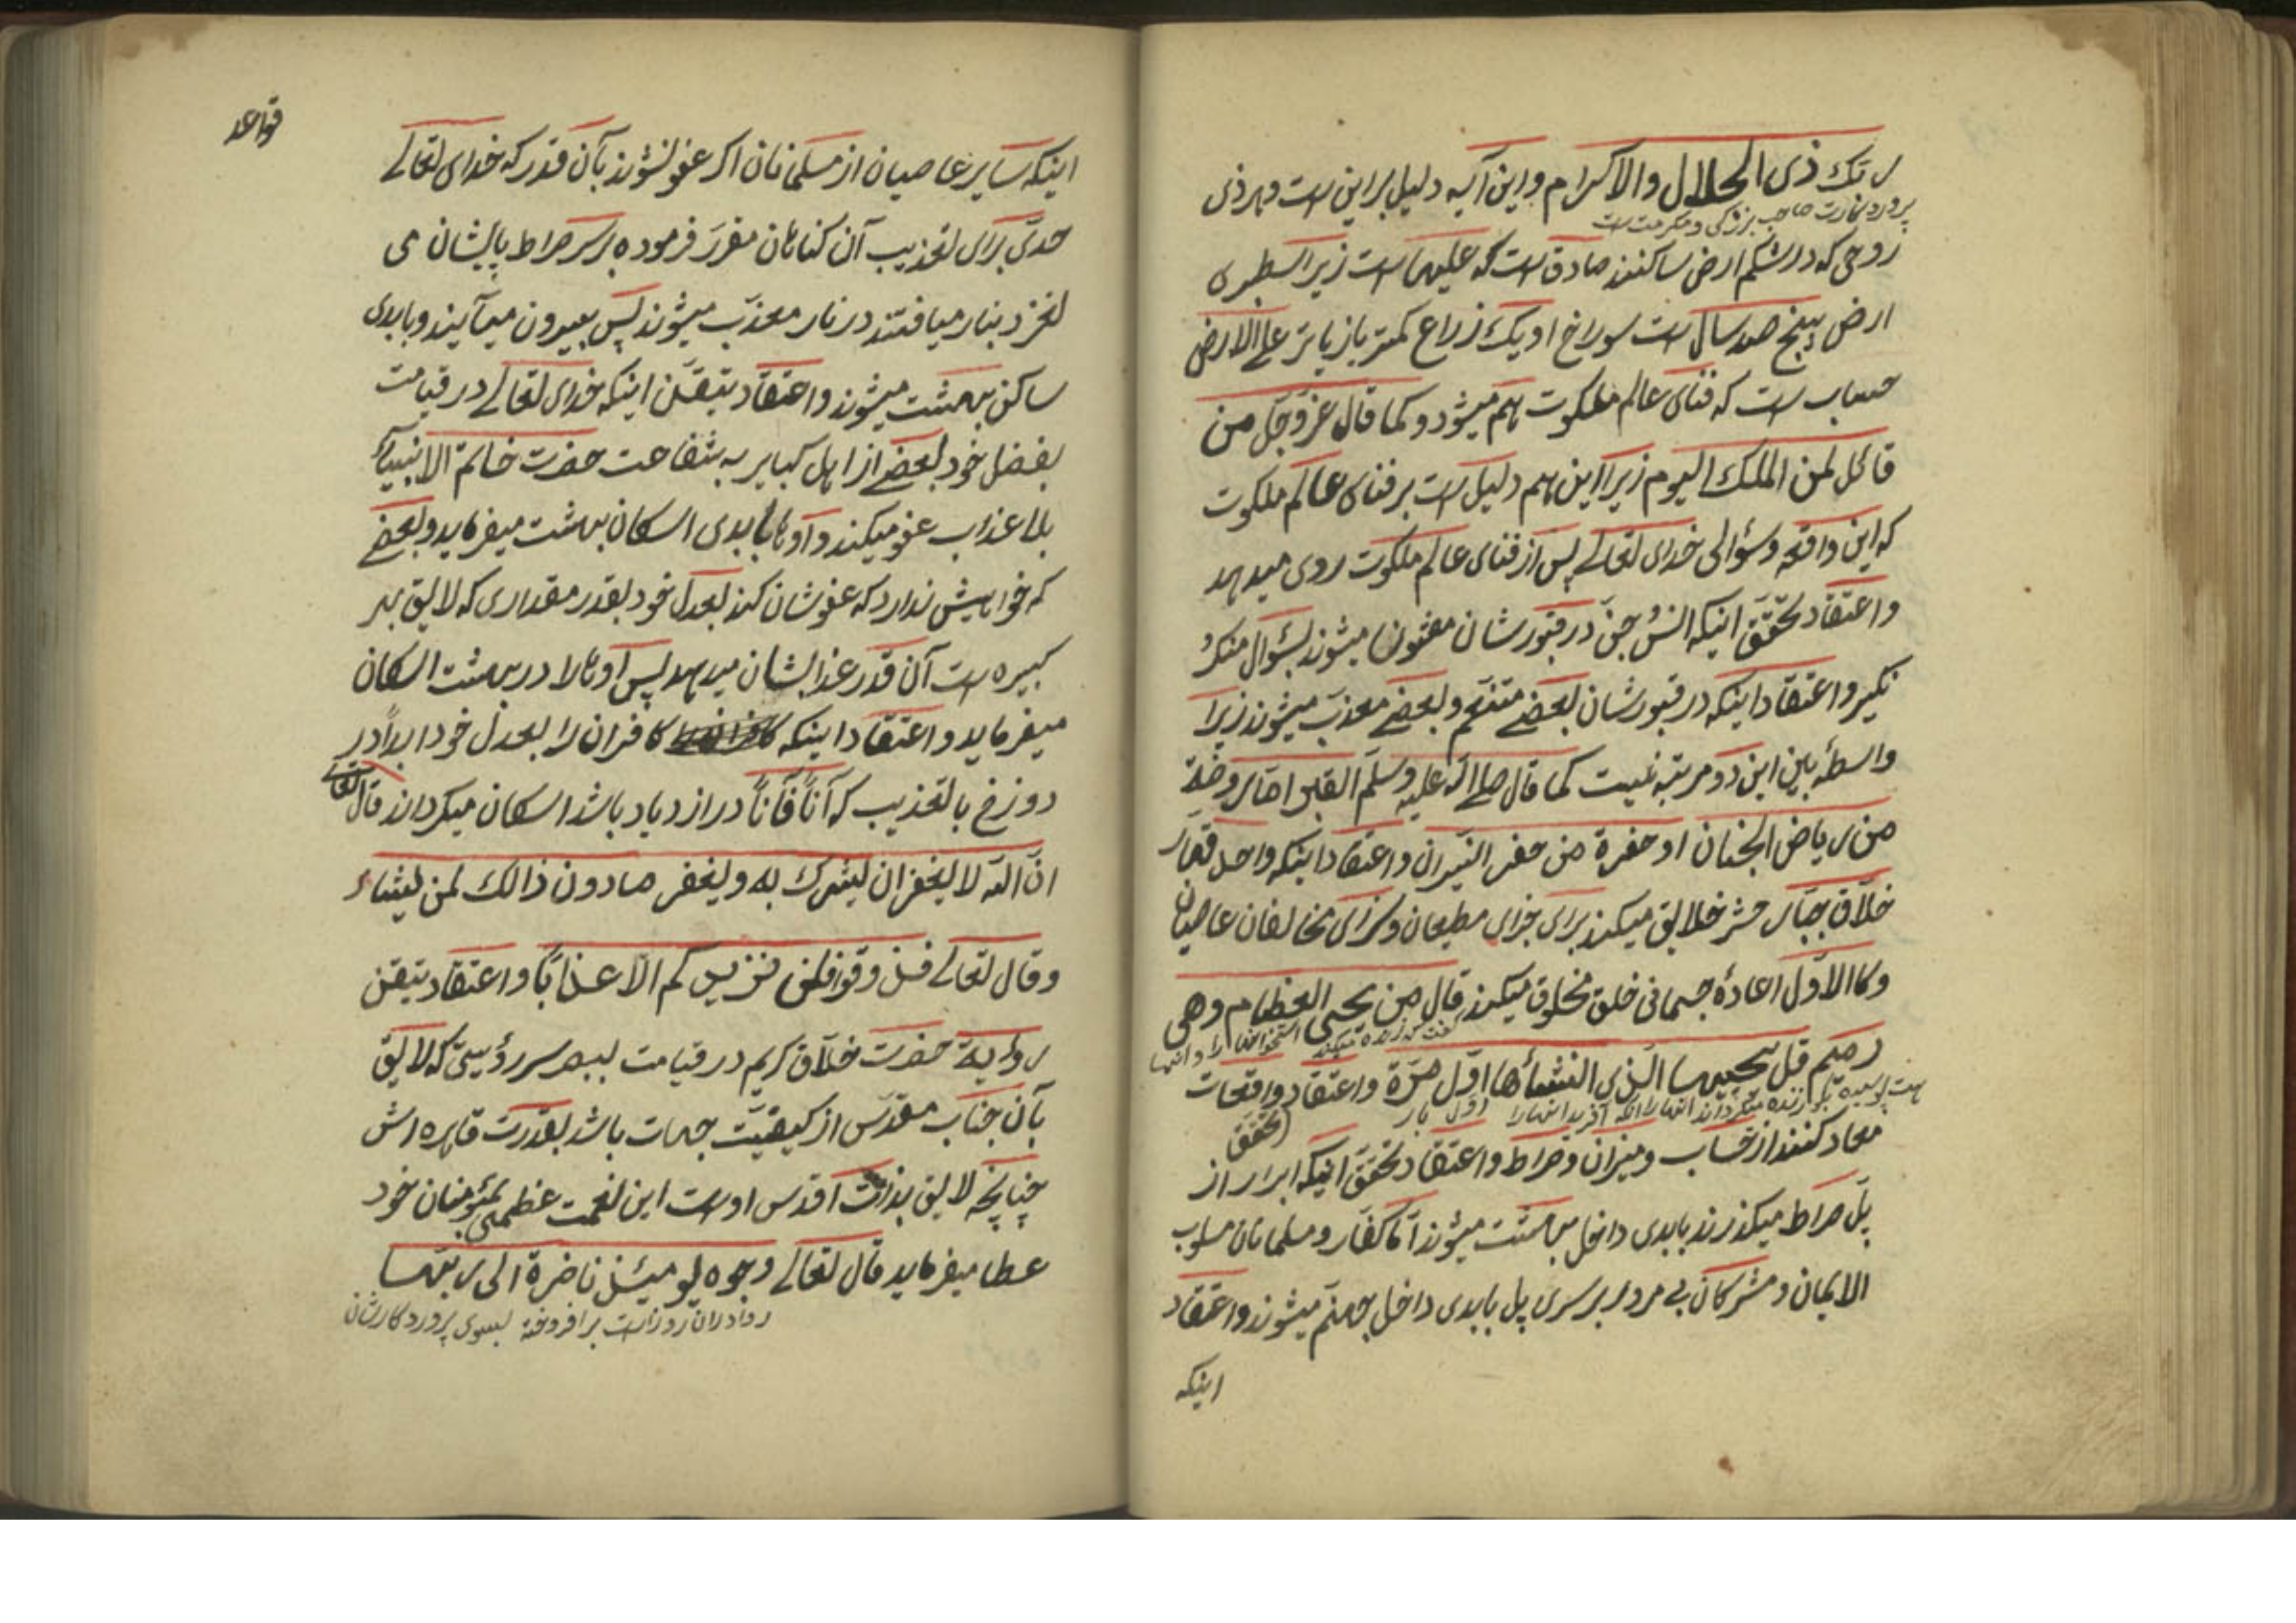 ربّك ذی الجلال والاکرام واین آیه دلیل براین است وهر ذی
پروردکارت صاحب بزرکی ومکرمت است
روحی که در شکم ارض ساکنند صادق است که علیها است زیرا سطبری
ارض پنج صد سال است سوراخ او یک ذراع کمتر یا زیاتر علی الارض
حساب است که فنای عالم ملکوت هم میشود و کما قال عزّ وجلّ من
قائل لمن الملك الیوم زیرا این هم دلیل است بر فنای عالم ملکوت
که این واقعه وسؤالی خدای تعالی پس از فنای عالم ملکوت روی میدهد
واعتقاد تحقّق اینکه انس جنّ در قبورشان مفتون میشوند بسؤال منکر
نکیر واعتقاد اینکه در قبورشان بعضی متنعّم و بعضی معذّب میشوند زیرا
واسطهٔ بین این دو مرتبه نیست کما قال صلی الله علیه وسلّم القبر امّا روضة
من ریاض الجنان او حفرة من حفر النیران واعتقاد اینکه واحد قهّار
خلّاق جبّار حشر خلایق میکند برای جزای مطیعان وسزای مخالفان عاصیان
وکا الاوّل اعادهٔ جسمانی خلق مخلوق میکند قال من یحیی العظام وهی
گفت کی زنده میکند استخوانها را و انها
رمیم قل یحییها الّذی انشأها اوّل مرّة واعتقاد واقعات
است پوسیده بکو زنده میکرداند انها را انکه آفرید انها را اوّل بار
(تحقّق
معاد کنند از حساب ومیزان وصراط واعتقاد تحقّق اینکه ابرار از
پل صراط میکذرند بابدی داخل بهشت میشوند امّا کفّار ومسلمانان مسلوب
الایمان ومشرکان بی مرور بر سری پل بابدی داخل جهنّم میشوند واعتقاد
اینکه
قواعد
اینکه سایر عاصیان از مسلمانان اکر عفو نشوند بآن قدر که خدای تعالی
حدّی برای تعذیب آن کناهان مقرر فرموده بر سر صراط پایشان می
لغزد بنار میافتند در نار معذّب میشوند پس بیرون میآیند وبابدی
ساکن بهشت میشوند واعتقاد تیقّن اینکه خدای تعالی در قیامت
بفضل خود بعضی از اهل کبایر به شفاعت حضرت خاتم الانبیاء
بلا عذاب عفو میکند و آوها بابدی اسکان بهشت میفرماید وبعضی
که خواهش ندارد که عفوشان کند بعدل خود بقدر مقداری که لایق بهر
کبیره است آن قدر عذابشان میدهد پس اوها را در بهشت اسکان
میفرماید و اعتقاد اینکه کافران را بعدل خود ابداً در
دوزخ بالتعذیب که آناً فآناً در ازدیاد باشد اسکان میکرداند قال تعالی
انّ الله لا یغفر ان یشرك به ویغفر مادون ذالك لمن یشاء
وقال تعالی فذوقوا فلن نزیدکم الّا عذاباً واعتقاد تیقن
روایة حضرت خلّاق کریم در قیامت ببصر سر رؤیتی که لایق
بآن جناب مقدّس از کیفیّت جهات باشد بقدرت قاهره اش
چنانچه لایق بذات اقدس اوست این نعمت عظمی بمؤمنان خود
عطا میفرماید قال تعالی وجوه یومئذ ناضرة الی ربّها
روها دران روز است برافروخته بسوی پروردکارشان